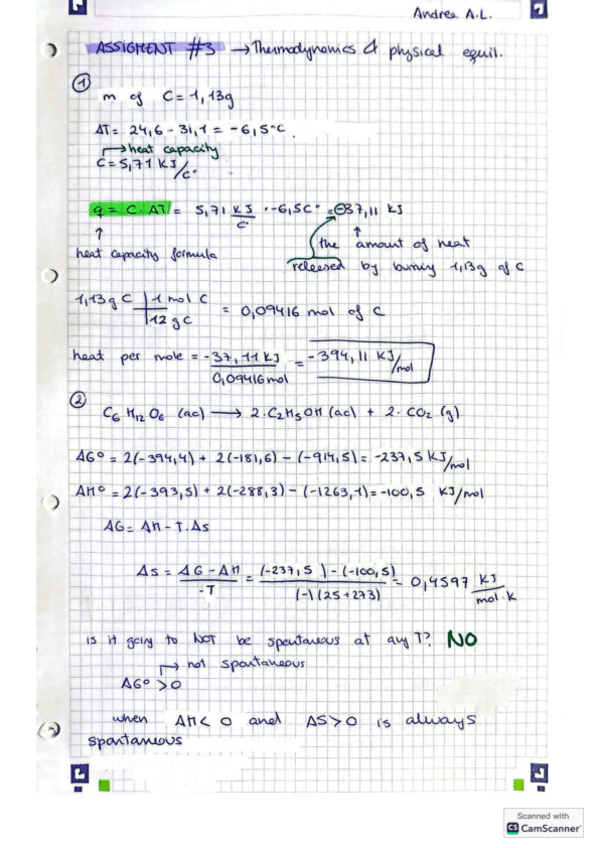 Andrea A.L.
ASSIGMENT #3 → Thermodynamics & physical equil.
①
m of C = 1,13g
ΔT = 24,6 - 31,1 = -6,5°C
→ heat capacity
C = 5,71 KJ/c°
q = C·ΔT = 5,71 KJ/C° · -6,5C° = -37,11 KJ
↑ heat capacity formula
the amount of heat
released by burning 1,13g of C
1,13g C | 1 mol C / 12 g C = 0,09416 mol of C
heat per mole = -37,11 KJ / 0,09416 mol = -394,11 KJ/mol
②
C6 H12 O6 (ac) → 2·C2H5OH (ac) + 2·CO2 (g)
ΔG° = 2(-394,4) + 2(-181,6) - (-914,5) = -237,5 KJ/mol
ΔH° = 2(-393,5) + 2(-288,3) - (-1263,1) = -100,5 KJ/mol
ΔG = ΔH - T·Δs
Δs = ΔG - ΔH / -T = (-237,5) - (-100,5) / (-)(25+273) = 0,4597 KJ/mol·K
is it going to NOT be spontaneous at any T? NO
→ not spontaneous
ΔG° > 0
when ΔH < 0 and ΔS > 0 is always
spontaneous
Scanned with
CS CamScanner